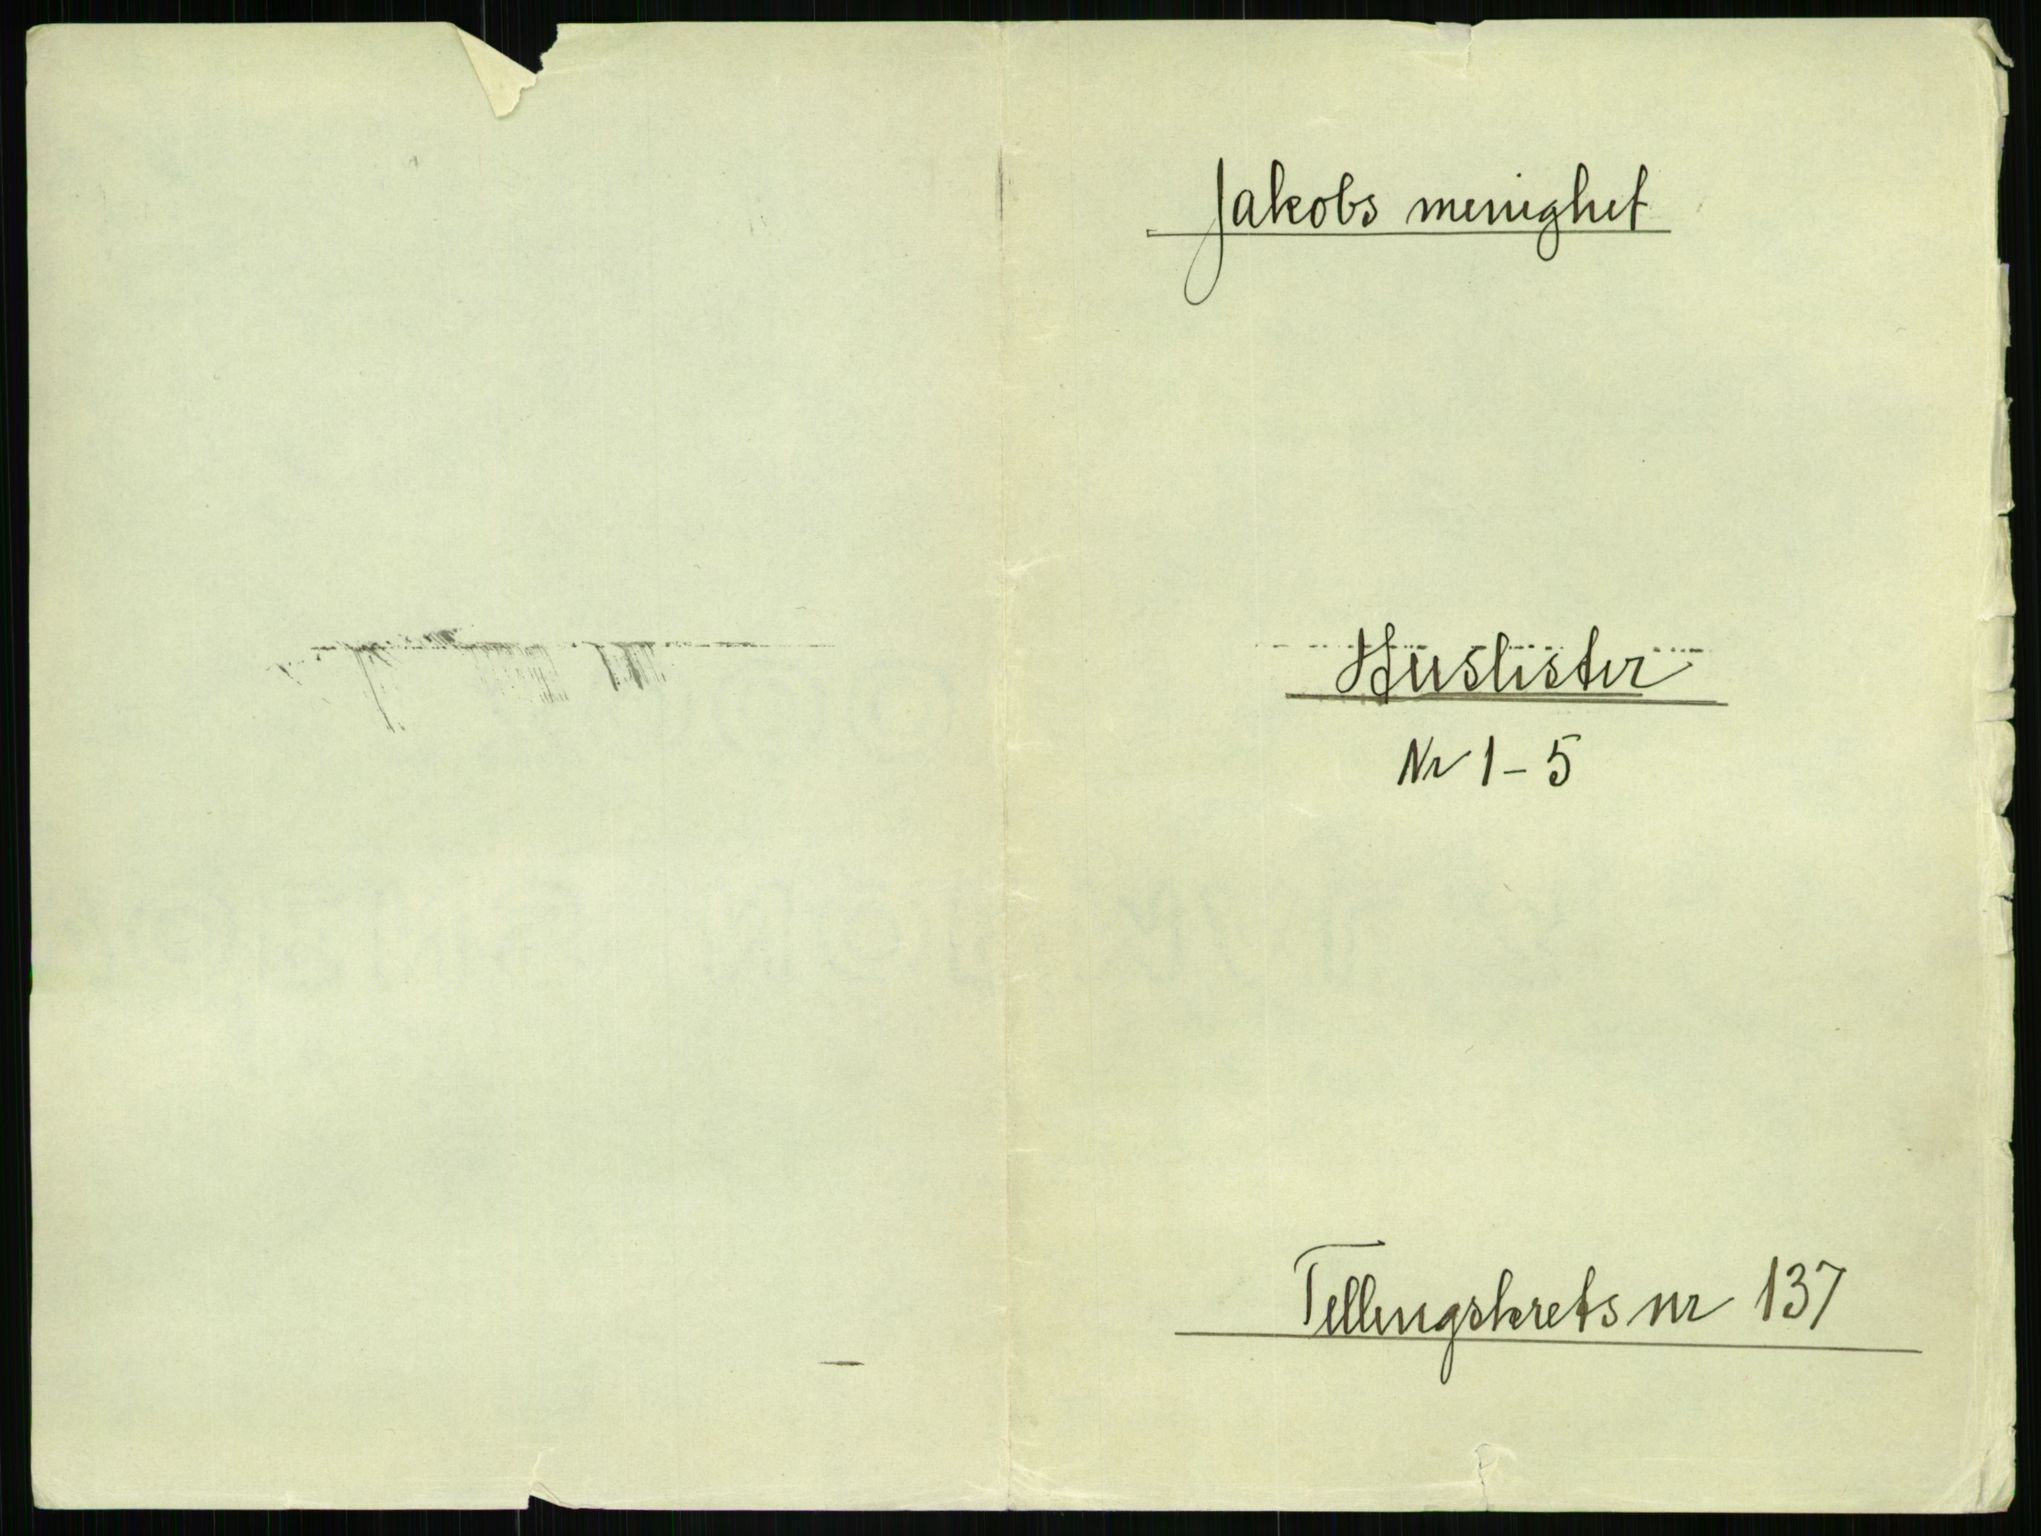 Jakobs menighet
Huslister
Nr 1-5
Tellingskrets nr 137